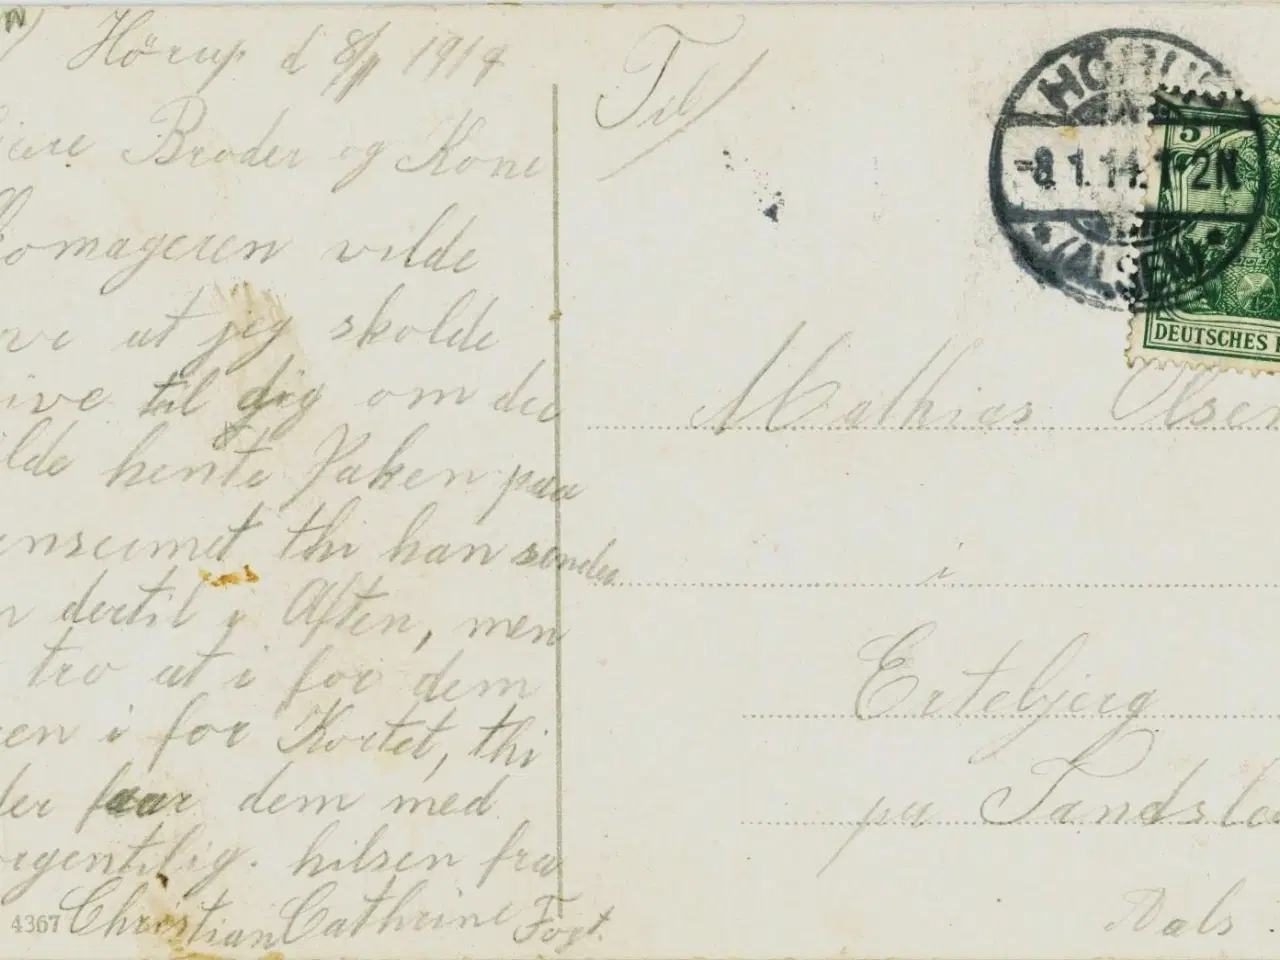 Hörup d 8/1 1914
ære Broder og Kone
komageren vilde
ve at jeg skolde
ive til dig om du
lde hente Jaken paa
enseumet thi han sender
n dertil i Aften, men
tro at i for dem
en i for Kortet, thi
der faar dem med
orgentilig. hilsen fra
Christian Cathrine Fogt.
4367
Til
HÖRUP
-8.1.14.1-2N
(ALSEN)
5
DEUTSCHES
Mathias Olsen
i
Ertebjerg
pa Tandsl
Als